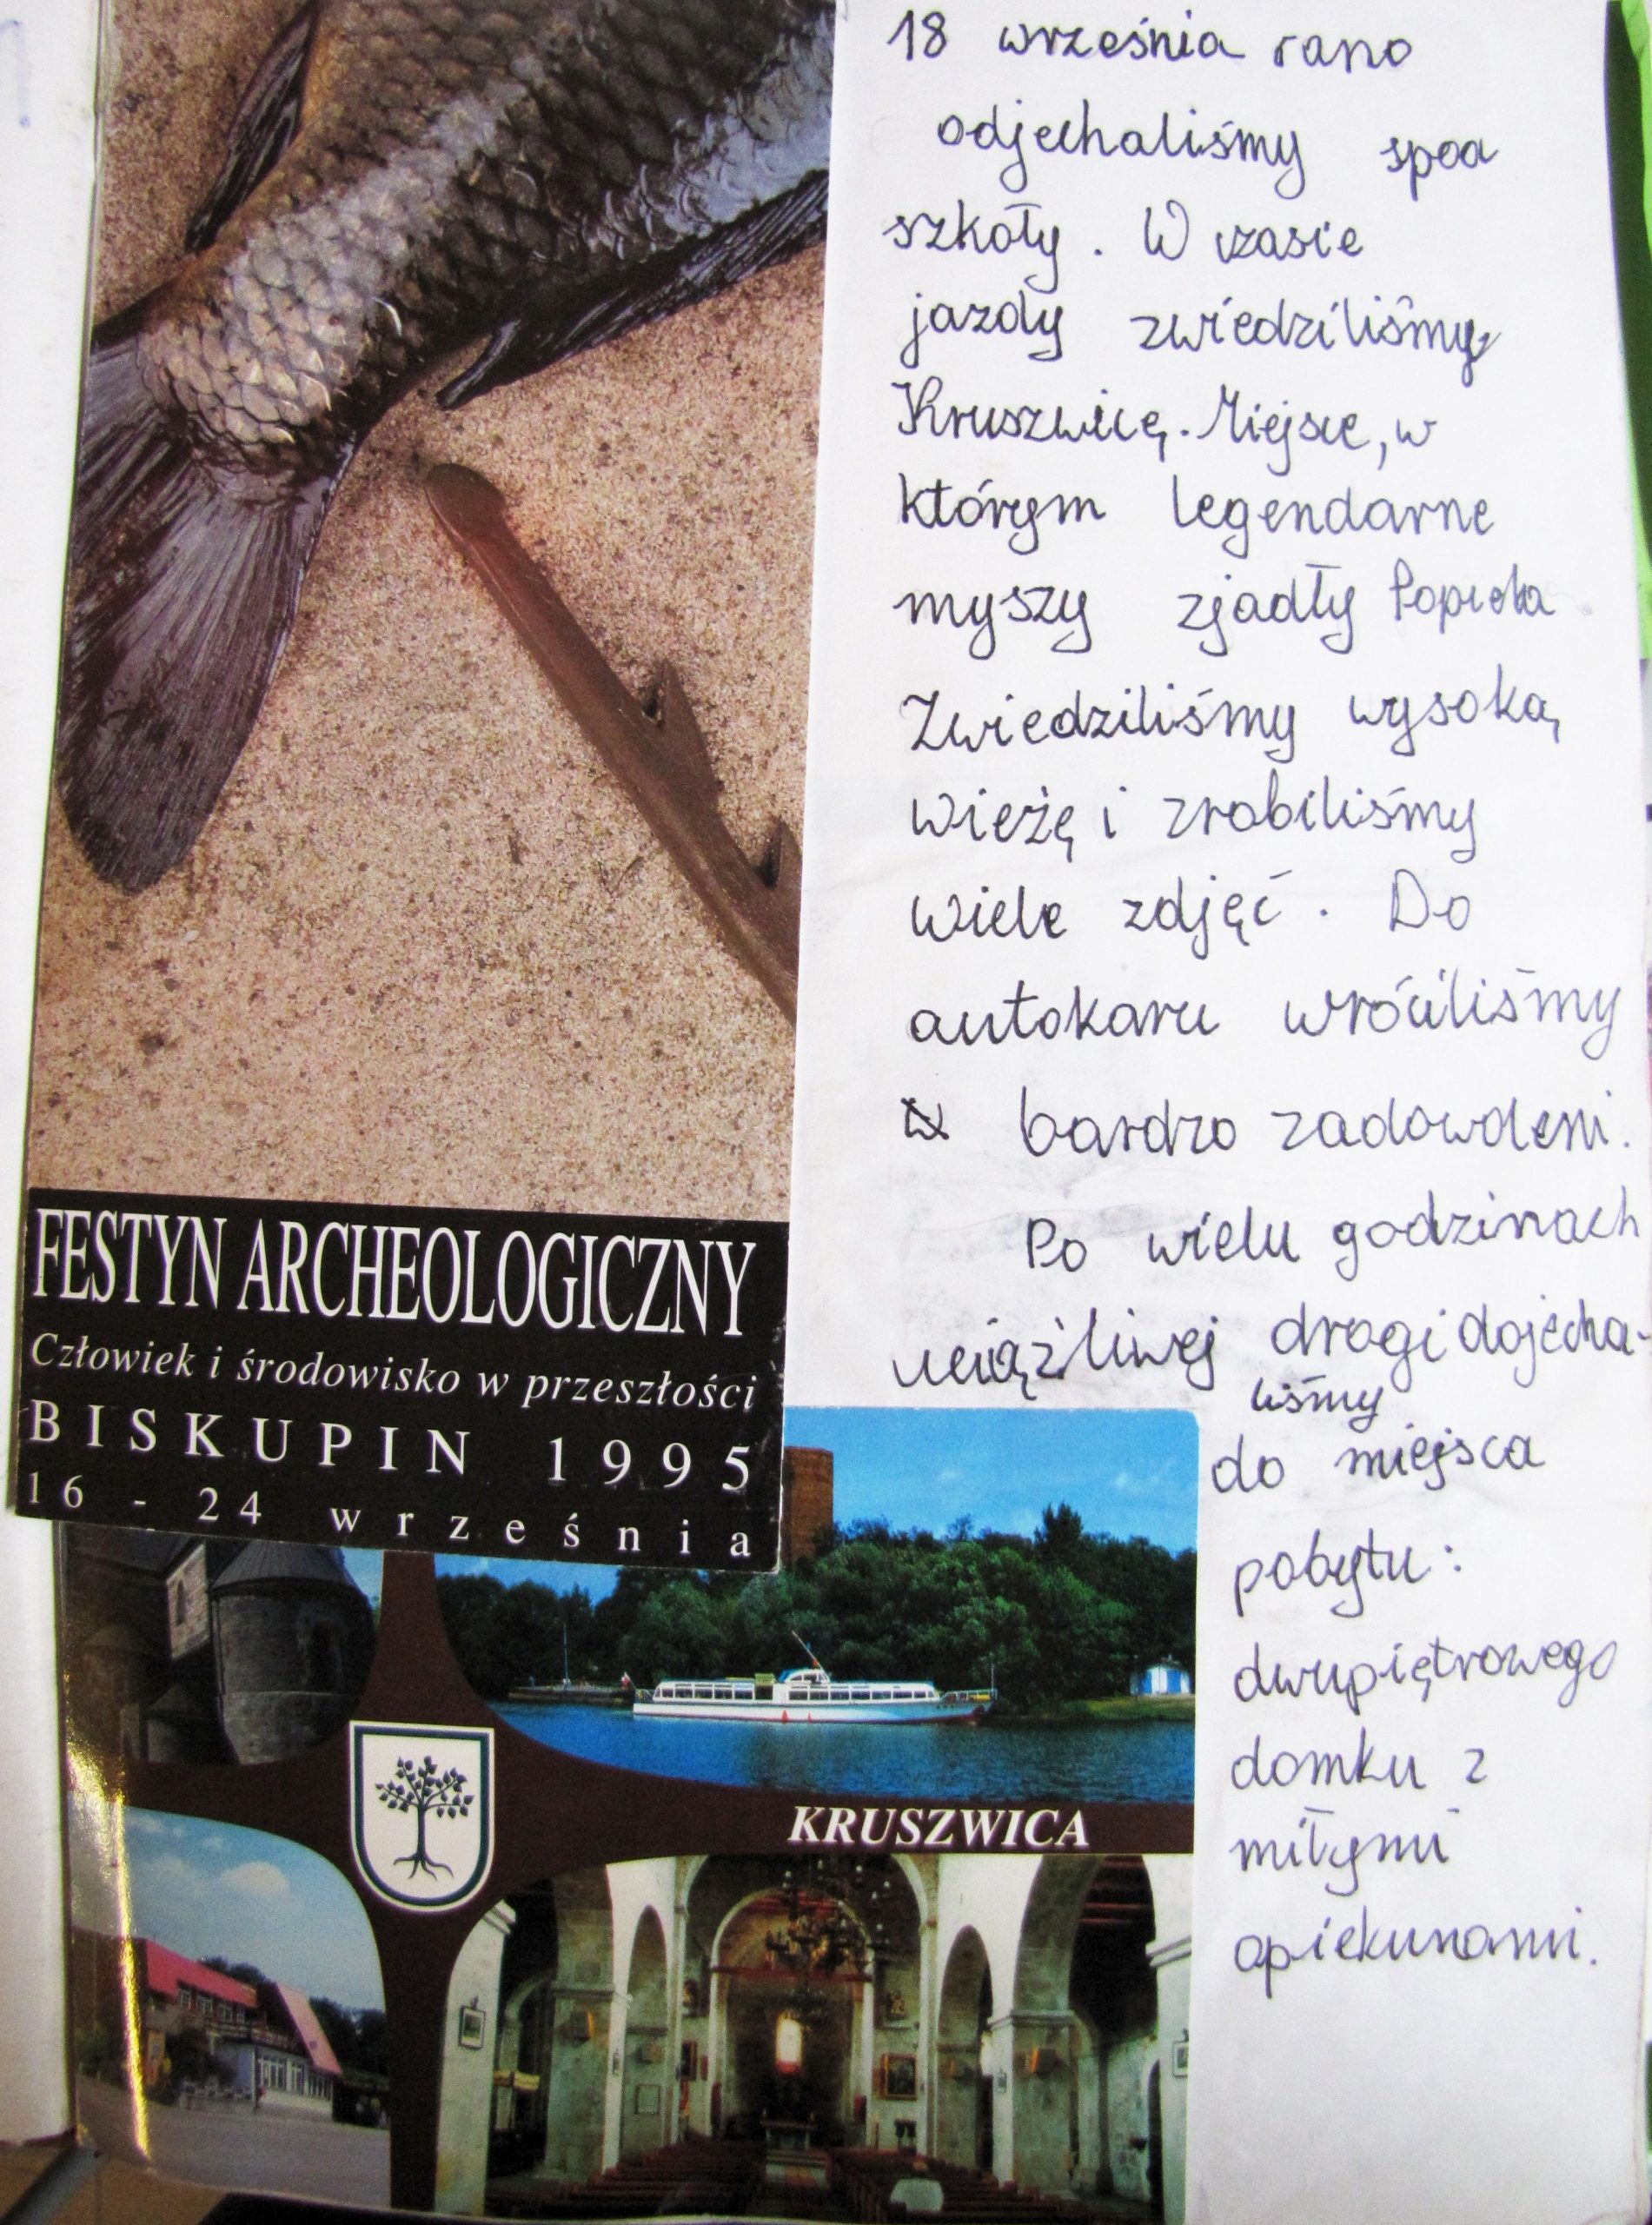 18 września rano
odjechaliśmy spod
szkoły. W czasie
jazdy zwiedziliśmy
Kruszwicę. Miejsce, w
którym legendarne
myszy zjadły Popiela
Zwiedziliśmy wysoką
wieżę i zrobiliśmy
wiele zdjęć. Do
autokaru wróciliśmy
bardzo zadowoleni.
Po wielu godzinach
uciążliwej drogi dojecha-
liśmy
do miejsca
pobytu:
dwupiętrowego
domku z
miłymi
opiekunami.
FESTYN ARCHEOLOGICZNY
Człowiek i środowisko w przeszłości
BISKUPIN 1995
16 - 24 września
KRUSZWICA